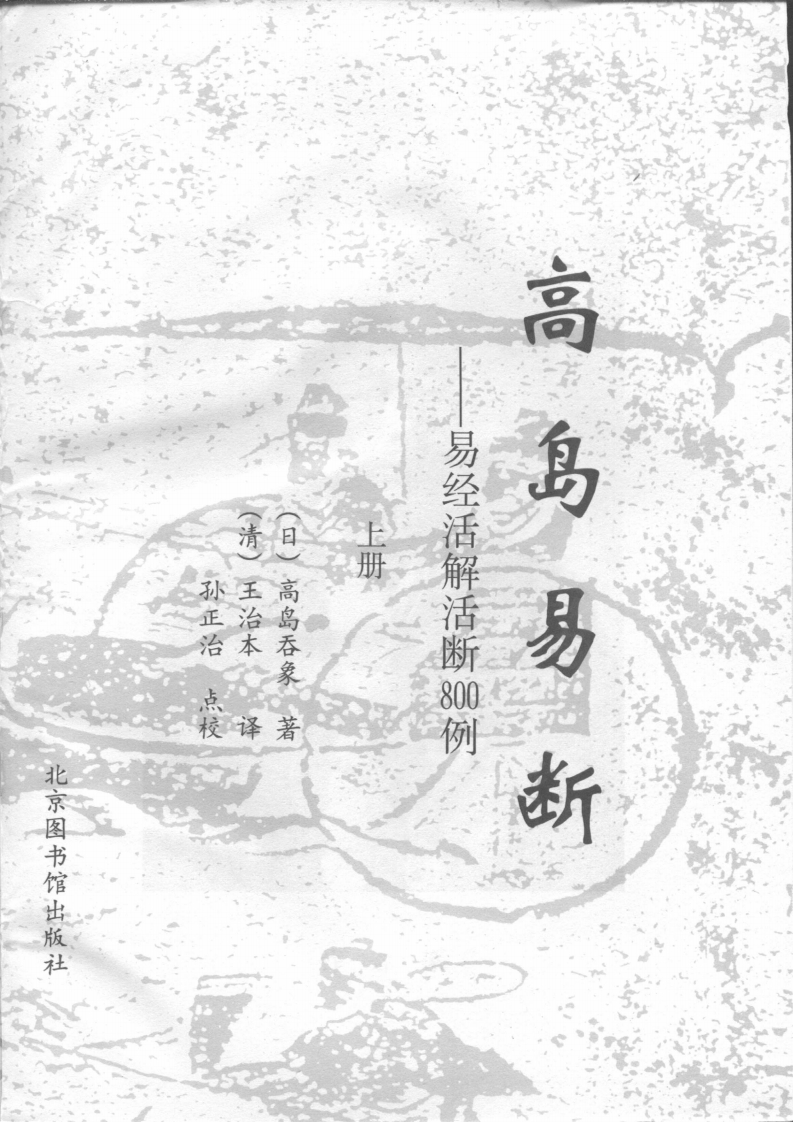 高岛易断
——易经活解活断800例
上册
(日) 高岛吞象 著
(清) 王治本 译
孙正治 点校
北京图书馆出版社